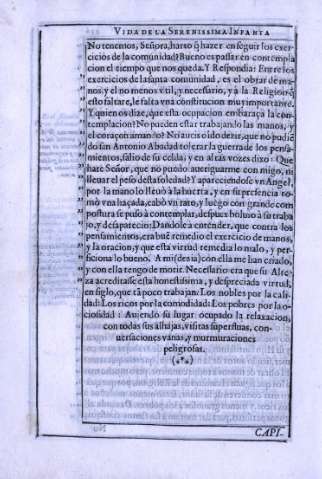 VIDA DE LA SERENISSIMA INFANTA
No tenemos, Señora, harto q̃ hazer en seguir los exer-
cicios de la comunidad? Bueno es passar en contempla
cion el tiempo que nos queda. Y Respondia: Entre los
exercicios de la santa comunidad, es el obrar de ma-
nos, y el no menos vtil, y necessario, y à la Religion q̃
esto faltare, le falta vna constitucion muy importante.
Y quien os dize, que esta ocupacion embaraça la con-
templacion? No pueden estar trabajando las manos, y
el coraçon amando? No aueis oido dezir, que no pudiē
do san Antonio Abad tolerar la guerra de los pensa-
mientos, salio de su celda; y en altas vozes dixo: Que
harè Señor, que no puedo aueriguarme con migo, ni
lleuar el peso desta soledad? Y apareciendose vn Angel,
por la mano lo lleuò à la huerta, y en su presencia to-
mò vna haçada, cabò vn rato, y luego con grande com
postura se puso à contemplar, despues boluiò à su traba
jo, y desapareciò: Dandole à entender, que contra los
pensamientos, era buē remedio el exercicio de manos,
y la oracion, y que esta virtud remedia lo malo, y per-
ficiona lo bueno. A mi (dezia) con ella me han criado,
y con ella tengo de morir. Necessario era que su Alte-
za acreditasse esta honestissima, y despreciada virtud,
en siglo, que tā poco trabajan: Los nobles por la cali-
dad: Los ricos por la comodidad: Los pobres por la o-
ciosidad: Auiendo su lugar ocupado la relaxacion,
con todas sus alhajas, visitas superfluas, con-
uersaciones varias, y murmuraciones
peligrosas.
CAPI-